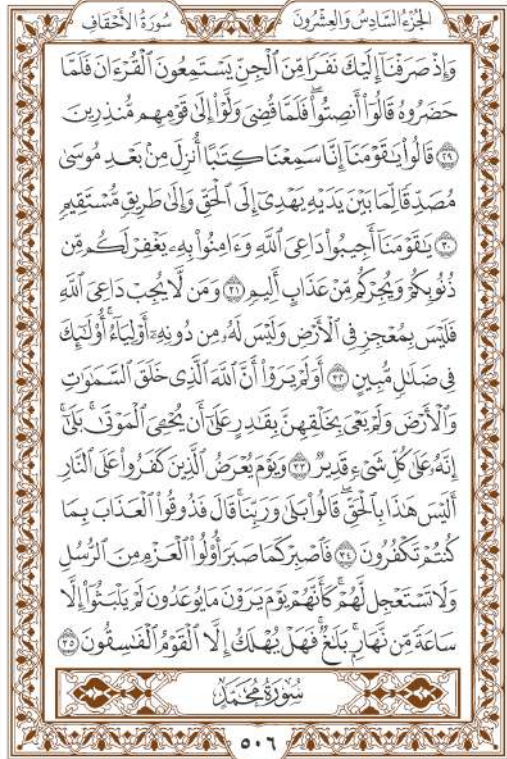 الجُزْءُ السَّادِسُ وَالعِشْرُونَ سُورَةُ الأَحْقَافِ
وَإِذْ صَرَفْنَآ إِلَيْكَ نَفَرًا مِّنَ ٱلْجِنِّ يَسْتَمِعُونَ ٱلْقُرْءَانَ فَلَمَّا
حَضَرُوهُ قَالُوٓا۟ أَنصِتُوا۟ ۖ فَلَمَّا قُضِىَ وَلَّوْا۟ إِلَىٰ قَوْمِهِم مُّنذِرِينَ
٢٩ قَالُوا۟ يَـٰقَوْمَنَآ إِنَّا سَمِعْنَا كِتَـٰبًا أُنزِلَ مِنۢ بَعْدِ مُوسَىٰ
مُصَدِّقًا لِّمَا بَيْنَ يَدَيْهِ يَهْدِىٓ إِلَى ٱلْحَقِّ وَإِلَىٰ طَرِيقٍ مُّسْتَقِيمٍ
٣٠ يَـٰقَوْمَنَآ أَجِيبُوا۟ دَاعِىَ ٱللَّهِ وَءَامِنُوا۟ بِهِۦ يَغْفِرْ لَكُم مِّن
ذُنُوبِكُمْ وَيُجِرْكُم مِّنْ عَذَابٍ أَلِيمٍ ٣١ وَمَن لَّا يُجِبْ دَاعِىَ ٱللَّهِ
فَلَيْسَ بِمُعْجِزٍ فِى ٱلْأَرْضِ وَلَيْسَ لَهُۥ مِن دُونِهِۦٓ أَوْلِيَآءُ ۚ أُو۟لَـٰٓئِكَ
فِى ضَلَـٰلٍ مُّبِينٍ ٣٢ أَوَلَمْ يَرَوْا۟ أَنَّ ٱللَّهَ ٱلَّذِى خَلَقَ ٱلسَّمَـٰوَٰتِ
وَٱلْأَرْضَ وَلَمْ يَعْىَ بِخَلْقِهِنَّ بِقَـٰدِرٍ عَلَىٰٓ أَن يُحْـِۧىَ ٱلْمَوْتَىٰ ۚ بَلَىٰٓ
إِنَّهُۥ عَلَىٰ كُلِّ شَىْءٍ قَدِيرٌ ٣٣ وَيَوْمَ يُعْرَضُ ٱلَّذِينَ كَفَرُوا۟ عَلَى ٱلنَّارِ
أَلَيْسَ هَـٰذَا بِٱلْحَقِّ ۖ قَالُوا۟ بَلَىٰ وَرَبِّنَا ۚ قَالَ فَذُوقُوا۟ ٱلْعَذَابَ بِمَا
كُنتُمْ تَكْفُرُونَ ٣٤ فَٱصْبِرْ كَمَا صَبَرَ أُو۟لُوا۟ ٱلْعَزْمِ مِنَ ٱلرُّسُلِ
وَلَا تَسْتَعْجِل لَّهُمْ ۚ كَأَنَّهُمْ يَوْمَ يَرَوْنَ مَا يُوعَدُونَ لَمْ يَلْبَثُوٓا۟ إِلَّا
سَاعَةً مِّن نَّهَارٍۭ ۚ بَلَـٰغٌ ۚ فَهَلْ يُهْلَكُ إِلَّا ٱلْقَوْمُ ٱلْفَـٰسِقُونَ ٣٥
سُورَةُ مُحَمَّدٍ
٥٠٦